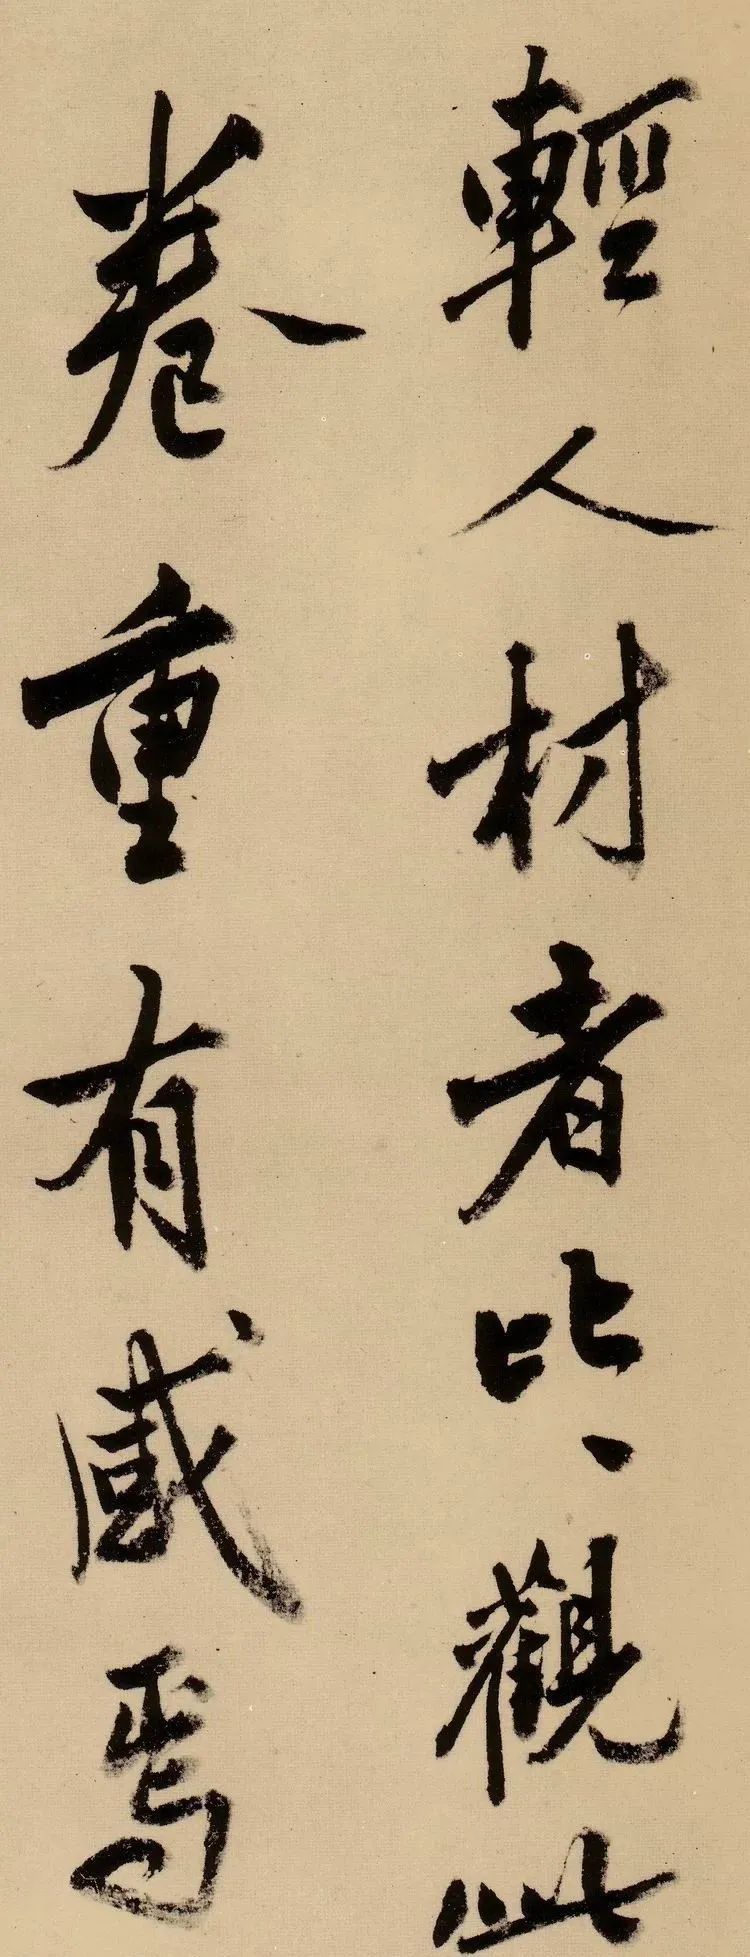 輕人材者比比觀此
卷重有感焉